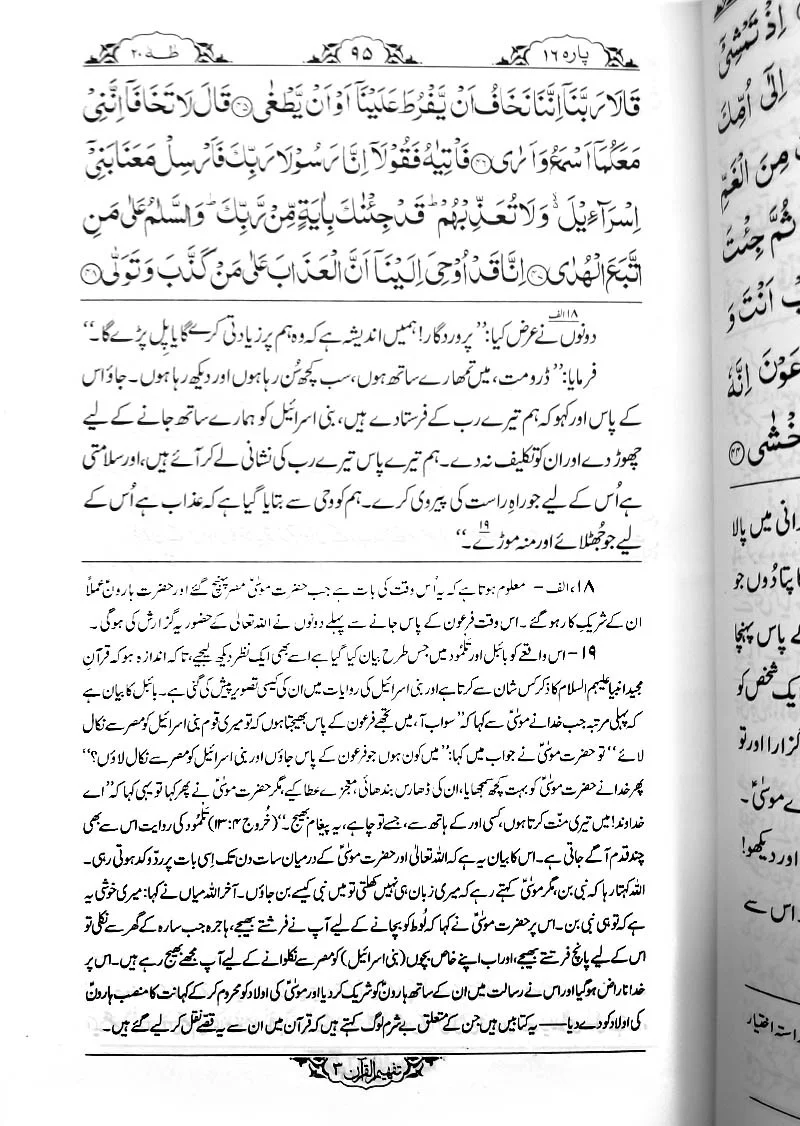 پارہ ۱۶
۹۵
طٰہٰ ۲۰
قَالَا رَبَّنَآ اِنَّنَا نَخَافُ اَنْ يَّفْرُطَ عَلَيْنَآ اَوْ اَنْ يَّطْغٰى ﴿۴۵﴾ قَالَ لَا تَخَافَآ اِنَّنِيْ
مَعَكُمَآ اَسْمَعُ وَ اَرٰى ﴿۴۶﴾ فَاْتِيٰهُ فَقُوْلَآ اِنَّا رَسُوْلَا رَبِّكَ فَاَرْسِلْ مَعَنَا بَنِيْٓ
اِسْرَآءِيْلَ ۙ وَلَا تُعَذِّبْهُمْ ؕ قَدْ جِئْنٰكَ بِاٰيَةٍ مِّنْ رَّبِّكَ ؕ وَالسَّلٰمُ عَلٰى مَنِ
اتَّبَعَ الْهُدٰى ﴿۴۷﴾ اِنَّا قَدْ اُوْحِيَ اِلَيْنَآ اَنَّ الْعَذَابَ عَلٰى مَنْ كَذَّبَ وَ تَوَلّٰى ﴿۴۸﴾
دونوں ۱۸الف نے عرض کیا: ”پروردگار! ہمیں اندیشہ ہے کہ وہ ہم پر زیادتی کرے گا یا پِل پڑے گا۔“
فرمایا: ”ڈرو مت، میں تمھارے ساتھ ہوں، سب کچھ سُن رہا ہوں اور دیکھ رہا ہوں۔ جاؤ اس
کے پاس اور کہو کہ ہم تیرے رب کے فرستادے ہیں، بنی اسرائیل کو ہمارے ساتھ جانے کے لیے
چھوڑ دے اور ان کو تکلیف نہ دے۔ ہم تیرے پاس تیرے رب کی نشانی لے کر آئے ہیں، اور سلامتی
ہے اُس کے لیے جو راہِ راست کی پیروی کرے۔ ہم کو وحی سے بتایا گیا ہے کہ عذاب ہے اُس کے
لیے جو جُھٹلائے اور منہ موڑے۔“ ۱۹
۱۸، الف – معلوم ہوتا ہے کہ یہ اُس وقت کی بات ہے جب حضرت موسیٰؑ مصر پہنچ گئے اور حضرت ہارونؑ عملاً
ان کے شریکِ کار ہو گئے۔ اس وقت فرعون کے پاس جانے سے پہلے دونوں نے اللہ تعالیٰ کے حضور یہ گزارش کی ہوگی۔
۱۹– اس واقعے کو بائبل اور تَلمُود میں جس طرح بیان کیا گیا ہے اسے بھی ایک نظر دیکھ لیجیے، تاکہ اندازہ ہو کہ قرآنِ
مجید انبیا علیہم السلام کا ذکر کس شان سے کرتا ہے اور بنی اسرائیل کی روایات میں ان کی کیسی تصویر پیش کی گئی ہے۔ بائبل کا بیان ہے
کہ پہلی مرتبہ جب خدا نے موسیٰؑ سے کہا کہ ”سو اب آ، میں تجھے فرعون کے پاس بھیجتا ہوں کہ تو میری قوم بنی اسرائیل کو مصر سے نکال
لائے“ تو حضرت موسیٰؑ نے جواب میں کہا: ”میں کون ہوں جو فرعون کے پاس جاؤں اور بنی اسرائیل کو مصر سے نکال لاؤں؟“
پھر خدا نے حضرت موسیٰؑ کو بہت کچھ سمجھایا، ان کی ڈھارس بندھائی، معجزے عطا کیے، مگر حضرت موسیٰؑ نے پھر کہا تو یہی کہا کہ ”اے
خداوند! میں تیری منّت کرتا ہوں، کسی اور کے ہاتھ سے، جسے تو چاہے، یہ پیغام بھیج۔“ (خُروج ۴:۱۳) تَلمُود کی روایت اس سے بھی
چند قدم آگے جاتی ہے۔ اس کا بیان یہ ہے کہ اللہ تعالیٰ اور حضرت موسیٰؑ کے درمیان سات دن تک اِسی بات پر ردّوکد ہوتی رہی۔
اللہ کہتا رہا کہ نبی بن، مگر موسیٰؑ کہتے رہے کہ میری زبان ہی نہیں کھلتی تو میں نبی کیسے بن جاؤں۔ آخر اللہ میاں نے کہا: میری خوشی یہ
ہے کہ تو ہی نبی بن۔ اس پر حضرت موسیٰؑ نے کہا کہ لُوط کو بچانے کے لیے آپ نے فرشتے بھیجے، ہاجرہ جب سارہ کے گھر سے نکلی تو
اس کے لیے پانچ فرشتے بھیجے، اور اب اپنے خاص بچوں (بنی اسرائیل) کو مصر سے نکلوانے کے لیے آپ مجھے بھیج رہے ہیں۔ اس پر
خدا ناراض ہو گیا اور اس نے رسالت میں ان کے ساتھ ہارونؑ کو شریک کر دیا اور موسیٰؑ کی اولاد کو محروم کر کے کہانت کا منصب ہارونؑ
کی اولاد کو دے دیا— یہ کتابیں ہیں جن کے متعلق بے شرم لوگ کہتے ہیں کہ قرآن میں ان سے یہ قصّے نقل کر لیے گئے ہیں۔
تفہیم القرآن ۳
اِذْ تَمْشِيْٓ
اِلٰٓى اُمِّكَ
مِنَ الْغَمِّ
ثُمَّ جِئْتَ
اَنْتَ وَ
عَوْنَ اِنَّهٗ
خْشٰى ﴿۴۴﴾
رانی میں پالا
پتا دُوں جو
کے پاس پہنچا
یک شخص کو
گزارا اور تو
ے موسیٰؑ۔
اور دیکھو!
اس سے
راستہ اختیار